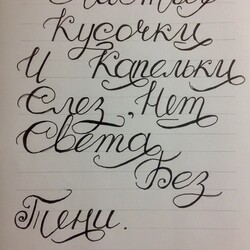 Кусочки
И Капельки
Слез, Нет
Света
Без
Тени.